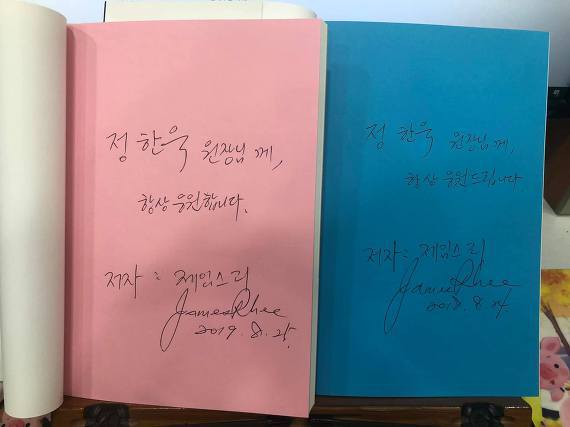 정 한욱 원장님께,
항상 응원합니다.
저자 : 제임스리
James Rhee
2019. 8. 25.
정 한욱 원장님께,
항상 응원드립니다.
저자 : 제임스리
James Rhee